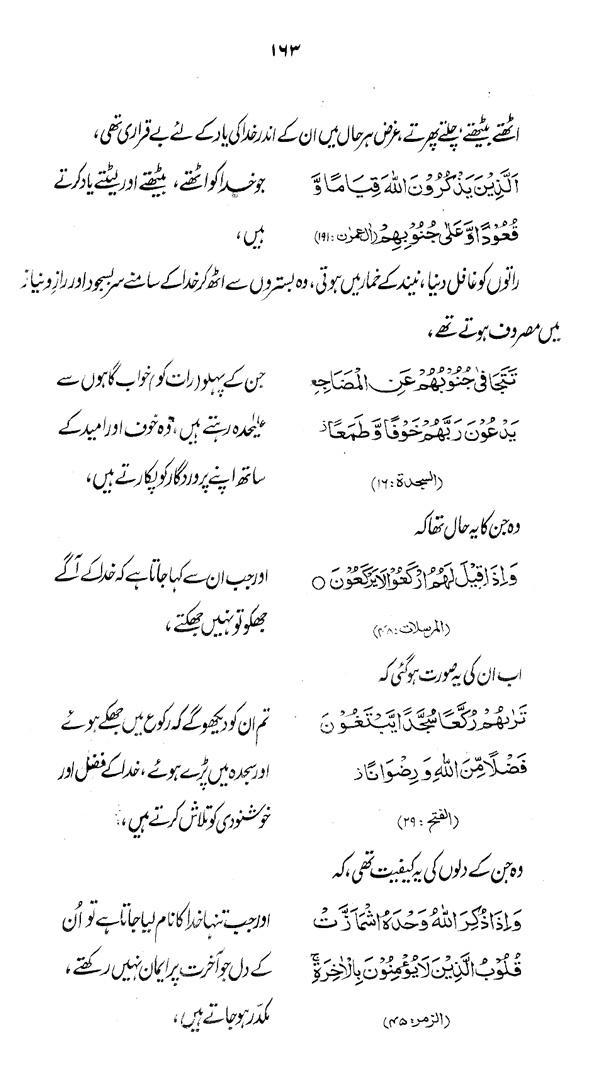 ۱۶۳
اٹھتے بیٹھتے، چلتے پھرتے، غرض ہر حال میں ان کے اندر خدا کی یاد کے لئے بے قراری تھی،
اَلَّذِیْنَ یَذْکُرُوْنَ اللّٰهَ قِیَامًا وَّ جو خدا کو اٹھتے، بیٹھتے اور لیٹتے یاد کرتے
قُعُوْدًا وَّعَلٰی جُنُوْبِهِمْ (اٰل عمرٰن : ۱۹۱) ہیں،
راتوں کو غافل دنیا، نیند کے خمار میں ہوتی، وہ بستروں سے اٹھ کر خدا کے سامنے سر بسجود اور راز و نیاز
میں مصروف ہوتے تھے،
تَتَجَافٰی جُنُوْبُهُمْ عَنِ الْمَضَاجِعِ جن کے پہلو (رات کو) خواب گاہوں سے
یَدْعُوْنَ رَبَّهُمْ خَوْفًا وَّ طَمَعًا علیٰحدہ رہتے ہیں، وہ خوف اور امید کے
(السجدة : ۱۶) ساتھ اپنے پروردگار کو پکارتے ہیں،
وہ جن کا یہ حال تھا کہ
وَاِذَا قِیْلَ لَهُمُ ارْکَعُوْا لَا یَرْکَعُوْنَ ○ اور جب ان سے کہا جاتا ہے کہ خدا کے آگے
(المرسلات : ۴۸) جھکو تو نہیں جھکتے،
اب ان کی یہ صورت ہو گئی کہ
تَرٰىهُمْ رُکَّعًا سُجَّدًا یَّبْتَغُوْنَ تم ان کو دیکھو گے کہ رکوع میں جھکے ہوئے
فَضْلًا مِّنَ اللّٰهِ وَ رِضْوَانًا اور سجدہ میں پڑے ہوئے، خدا کے فضل اور
(الفتح : ۲۹) خوشنودی کو تلاش کرتے ہیں،
وہ جن کے دلوں کی یہ کیفیت تھی، کہ
وَاِذَا ذُکِرَ اللّٰهُ وَحْدَهُ اشْمَاَزَّتْ اور جب تنہا خدا کا نام لیا جاتا ہے تو اُن
قُلُوْبُ الَّذِیْنَ لَا یُؤْمِنُوْنَ بِالْاٰخِرَةِ ۚ کے دل جو آخرت پر ایمان نہیں رکھتے،
(الزمر : ۴۵) مکدّر ہو جاتے ہیں،